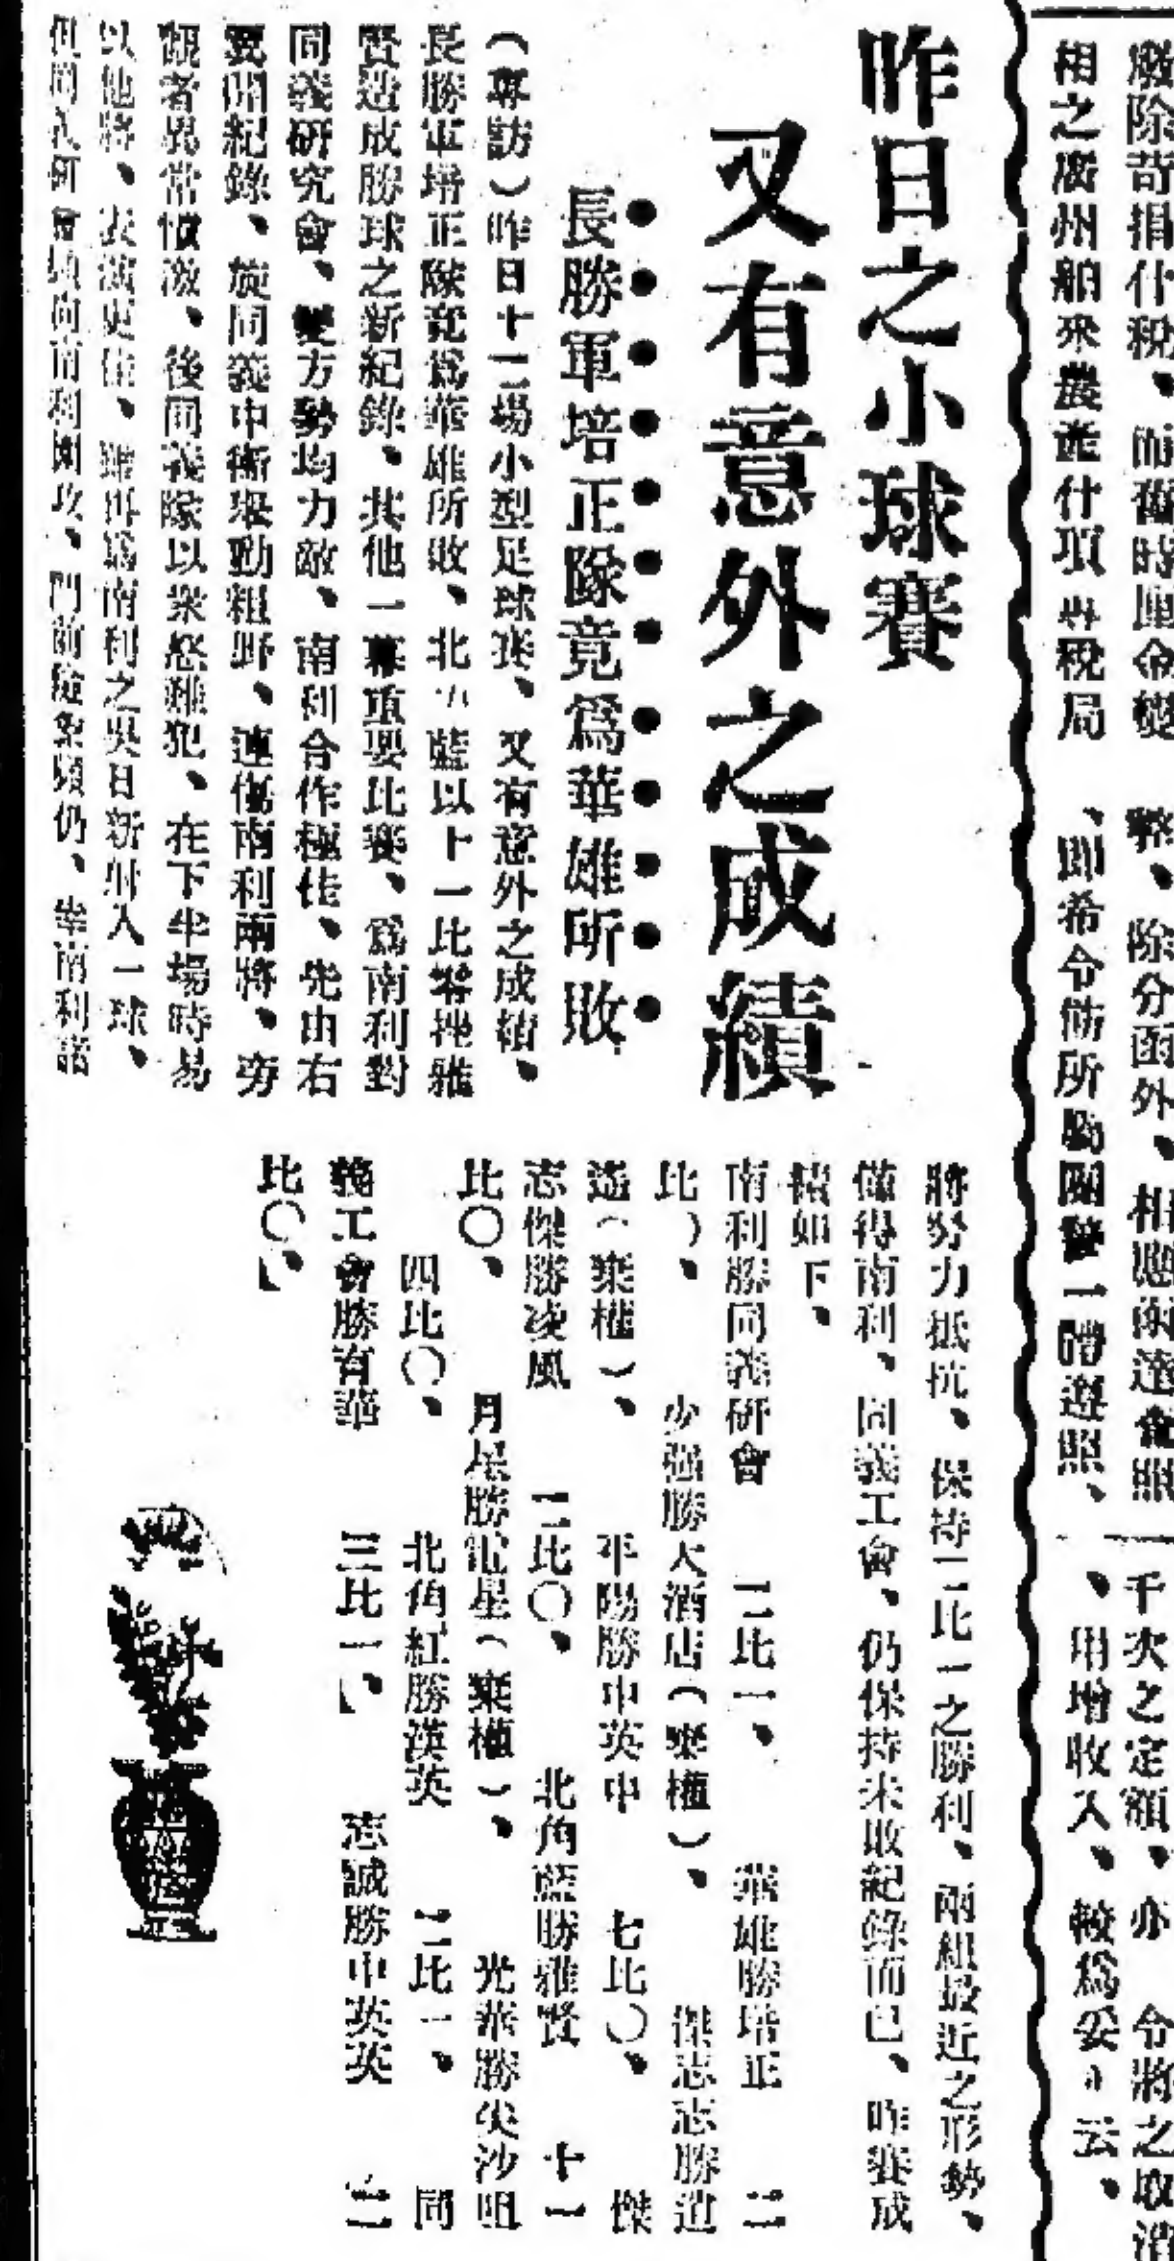 廢除苛捐什稅、而舊時厘金變
相之廣州舶來農產什項專稅局
弊、除分函外、相應函達查照
、即希令飭所屬團警一體遵照、
千次之定額、亦 令將之取消
、用增收入、較爲妥 云、
昨日之小球賽
又有意外之成績
長勝軍培正隊竟爲華雄所敗
(專訪)昨日十一場小型足球賽、又有意外之成績、
長勝軍培正隊竟爲華雄所敗、北角藍以十一比零挫雅
賢造成勝球之新紀錄、其他一幕重要比賽、爲南利對
同義研究會、雙方勢均力敵、南利合作極佳、先由右
翼開紀錄、旋同義中衛舉動粗野、連傷南利兩將、旁
觀者異常憤激、後同義隊以衆怒難犯、在下半場時易
以他將、表演更佳、雖再爲南利之吳日新射入一球、
但同義 會 向南利圍攻、門前險象頻仍、幸南利諸
將努力抵抗、保持二比一之勝利、兩組最近之形勢、
僅得南利、同義工會、仍保持未敗紀錄而已、昨賽成
績如下、
南利勝同義研會 二比一、 華雄勝培正 二
比 )、 少強勝大酒店(棄權)、 傑志志勝逍
遙(棄權)、 平陽勝中英中 七比〇、 傑
志傑勝凌風 二比〇、 北角藍勝雅賢 十一
比〇、 月星勝電星(棄權)、 光華勝尖沙咀
四比〇、 北角紅勝漢英 二比一、 同
義工會勝有華 三比一、 志誠勝中英英 二
比〇、